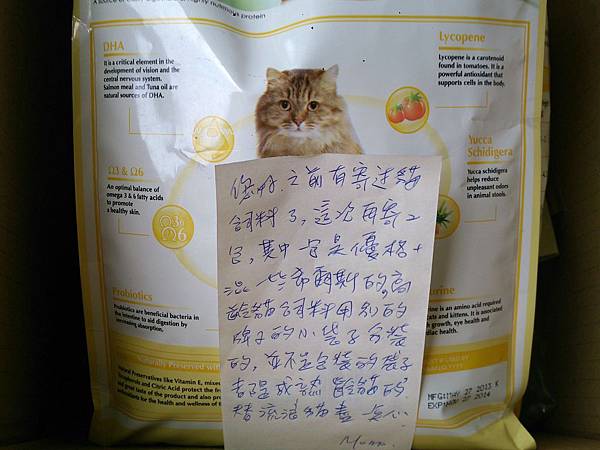 A source of highly nutritious protein
DHA
It is a critical element in the
development of vision and the
central nervous system.
Salmon meal and Tuna oil are
natural sources of DHA.
Lycopene
Lycopene is a carotenoid
found in tomatoes. It is a
powerful antioxidant that
supports cells in the body.
Yucca
Schidigera
Yucca schidigera
helps reduce
unpleasant odors
in animal stools.
Ω3 & Ω6
An optimal balance of
omega 3 & 6 fatty acids
to promote
a healthy skin.
Ω3
Ω6
Probiotics
Probiotics are beneficial bacteria in
the intestine to aid digestion by
increasing absorption.
urine
rine is an amino acid required
ts and kittens. It is associated
h growth, eye health and
diac health.
Naturally Preserved wi
Natural Preservatives like Vitamin E, mixed
ocopherols and Citric Acid protect the fre
and great taste of the product and also pro
antioxidants for the health and wellness of
MFG:MAY 27 2013 K
EXP:NOV 27 2014
您好.之前有寄过貓
飼料了,這次再寄2
包,其中一包是優格+
混一些希爾斯的高
齡貓飼料用別的
牌子的小袋子分裝
的,並不是包裝的袋子
成 齡貓的
替流浪貓盡一点心